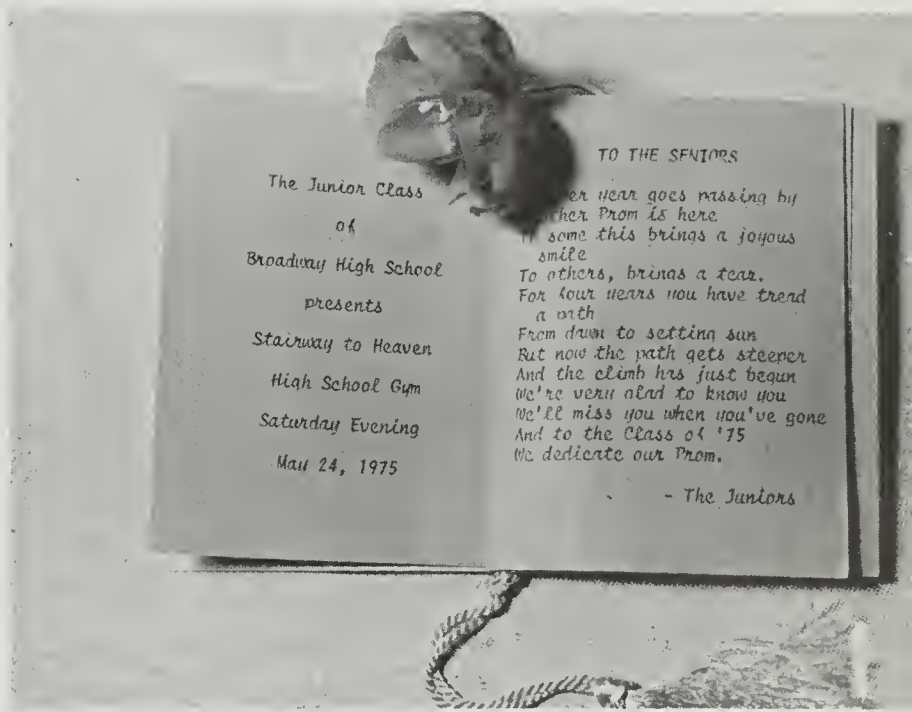 The Junior Class
of
Broadway High School
presents
Stairway to Heaven
High School Gym
Saturday Evening
May 24, 1975
TO THE SENIORS
year goes passing by
Prom is here
some this brings a joyous
smile
To others, brings a tear.
For four years you have tread
a path
From dawn to setting sun
But now the path gets steeper
And the climb has just begun
We're very glad to know you
We'll miss you when you've gone
And to the Class of '75
We dedicate our Prom.
- The Juniors